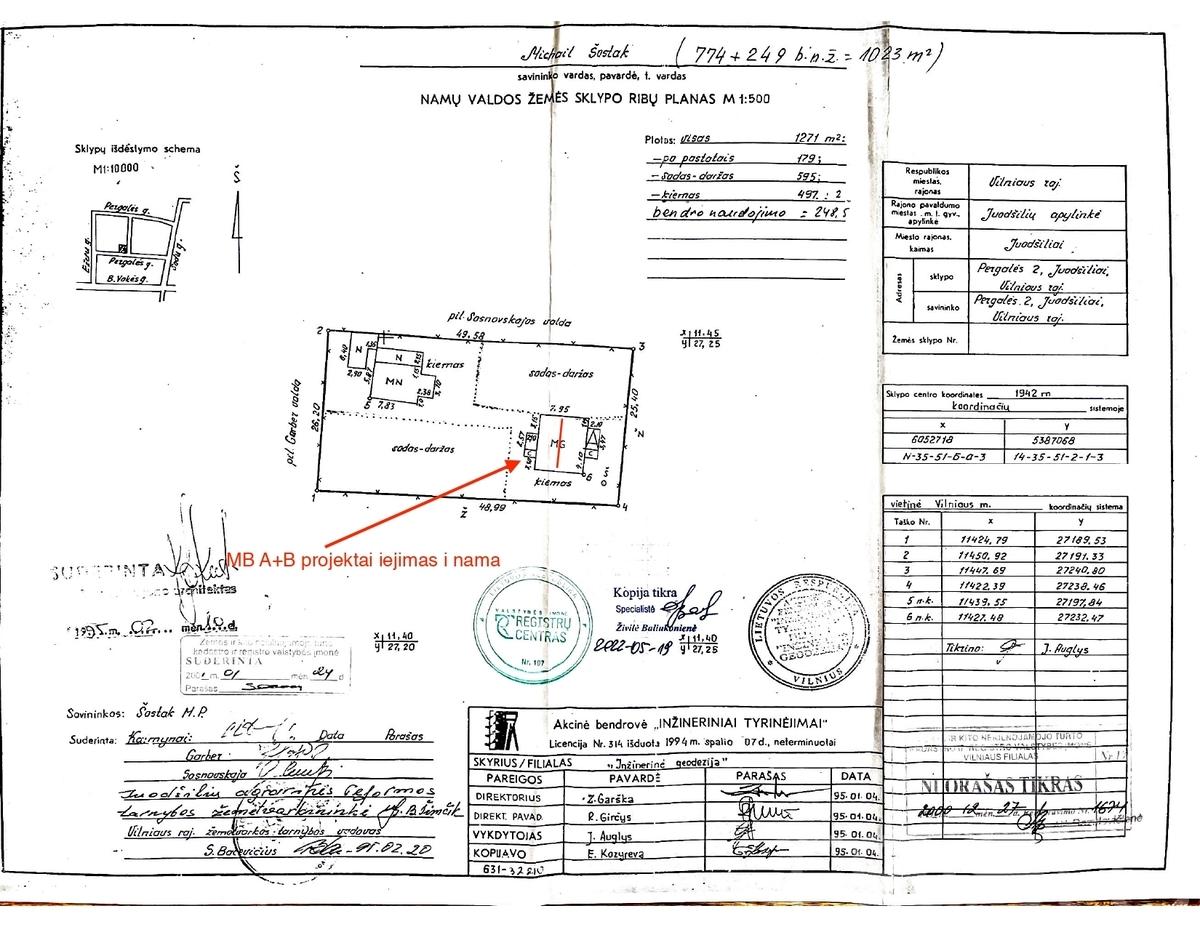 Michail Šostak (774 + 249 b.n.ž. = 1023 m²)
savininko vardas, pavardė, t. vardas
NAMŲ VALDOS ŽEMĖS SKLYPO RIBŲ PLANAS M 1:500
Sklypų išdėstymo schema
M1:10000
Š
Pergalės g.
Sodų g.
Pergalės g.
B. Vokės g.
Plotas: visas 1271 m²:
— po pastatais 179;
— sodas-daržas 595;
— kiemas 497. : 2
bendro naudojimo = 248,5
Respublikos miestas, rajonas
Vilniaus raj.
Rajono pavaldumo miestas, m. t. gyv., apylinkė
Juodšilių apylinkė
Miesto rajonas, kaimas
Juodšiliai
Adresas
sklypo
Pergalės 2, Juodšiliai,
Vilniaus raj.
savininko
Pergalės 2, Juodšiliai,
Vilniaus raj.
Žemės sklypo Nr.
pil. Sosnovskajos valda
49,58
x 11,45
y 27,25
2
3
N
1,35
8,40
2,90
N
kiemas
MN
5,87
2,38
5
7,83
sodas-daržas
pil. Garber valda
26,20
25,40
7,95
MG
sodas-daržas
9,10
6
kiemas
1
Ž
48,99
4
Sklypo centro koordinatės 1942 m
koordinačių sistemoje
x y
6052718 5387068
N-35-51-6-a-3 14-35-51-2-1-3
vietinė Vilniaus m. koordinačių sistema
Taško Nr. x y
1 11424,79 27189,53
2 11450,92 27191,33
3 11447,69 27240,80
4 11422,39 27238,46
5 n.k. 11439,55 27197,84
6 n.k. 11427,48 27232,47
Tikrino: J. Auglys
MB A+B projektai iejimas i nama
SUDERINTA
rajono architektas
1995 m. mėn. d.
x 11,40
y 27,20
kadastro ir registro valstybės įmonė
SUDERINTA
m. 01 mėn. 24 d
Parašas
VALSTYBĖS ĮMONĖ
REGISTRŲ
CENTRAS
Nr. 107
Kopija tikra
Specialistė
Živilė Baliukonienė
2022-05-19
x 11,40
y 27,25
LIETUVOS RESPUBLIKA
VILNIUS
Savininkas: Šostak M.P.
Suderinta: Kaimynai: Data Parašas
Garber
Sosnovskaja
Juodšilių agrarinės reformos
tarnybos žemėtvarkininkė
Vilniaus raj. žemėtvarkos tarnybos vadovas
S. Bacevičius 95.02.20
Akcinė bendrovė „INŽINERINIAI TYRINĖJIMAI"
Licencija Nr. 314 išduota 1994 m. spalio 07 d., neterminuotai
SKYRIUS/FILIALAS „Inžinerinė geodezija"
PAREIGOS PAVARDĖ PARAŠAS DATA
DIREKTORIUS Z. Garška 95.01.04.
DIREKT. PAVAD. R. Girčys 95.01.04.
VYKDYTOJAS J. Auglys 95.01.04.
KOPIJAVO E. Kozyreva 95.01.04.
VILNIAUS FILIALAS
NUORAŠAS TIKRAS
2000 12 mėn. 27 d. 1674